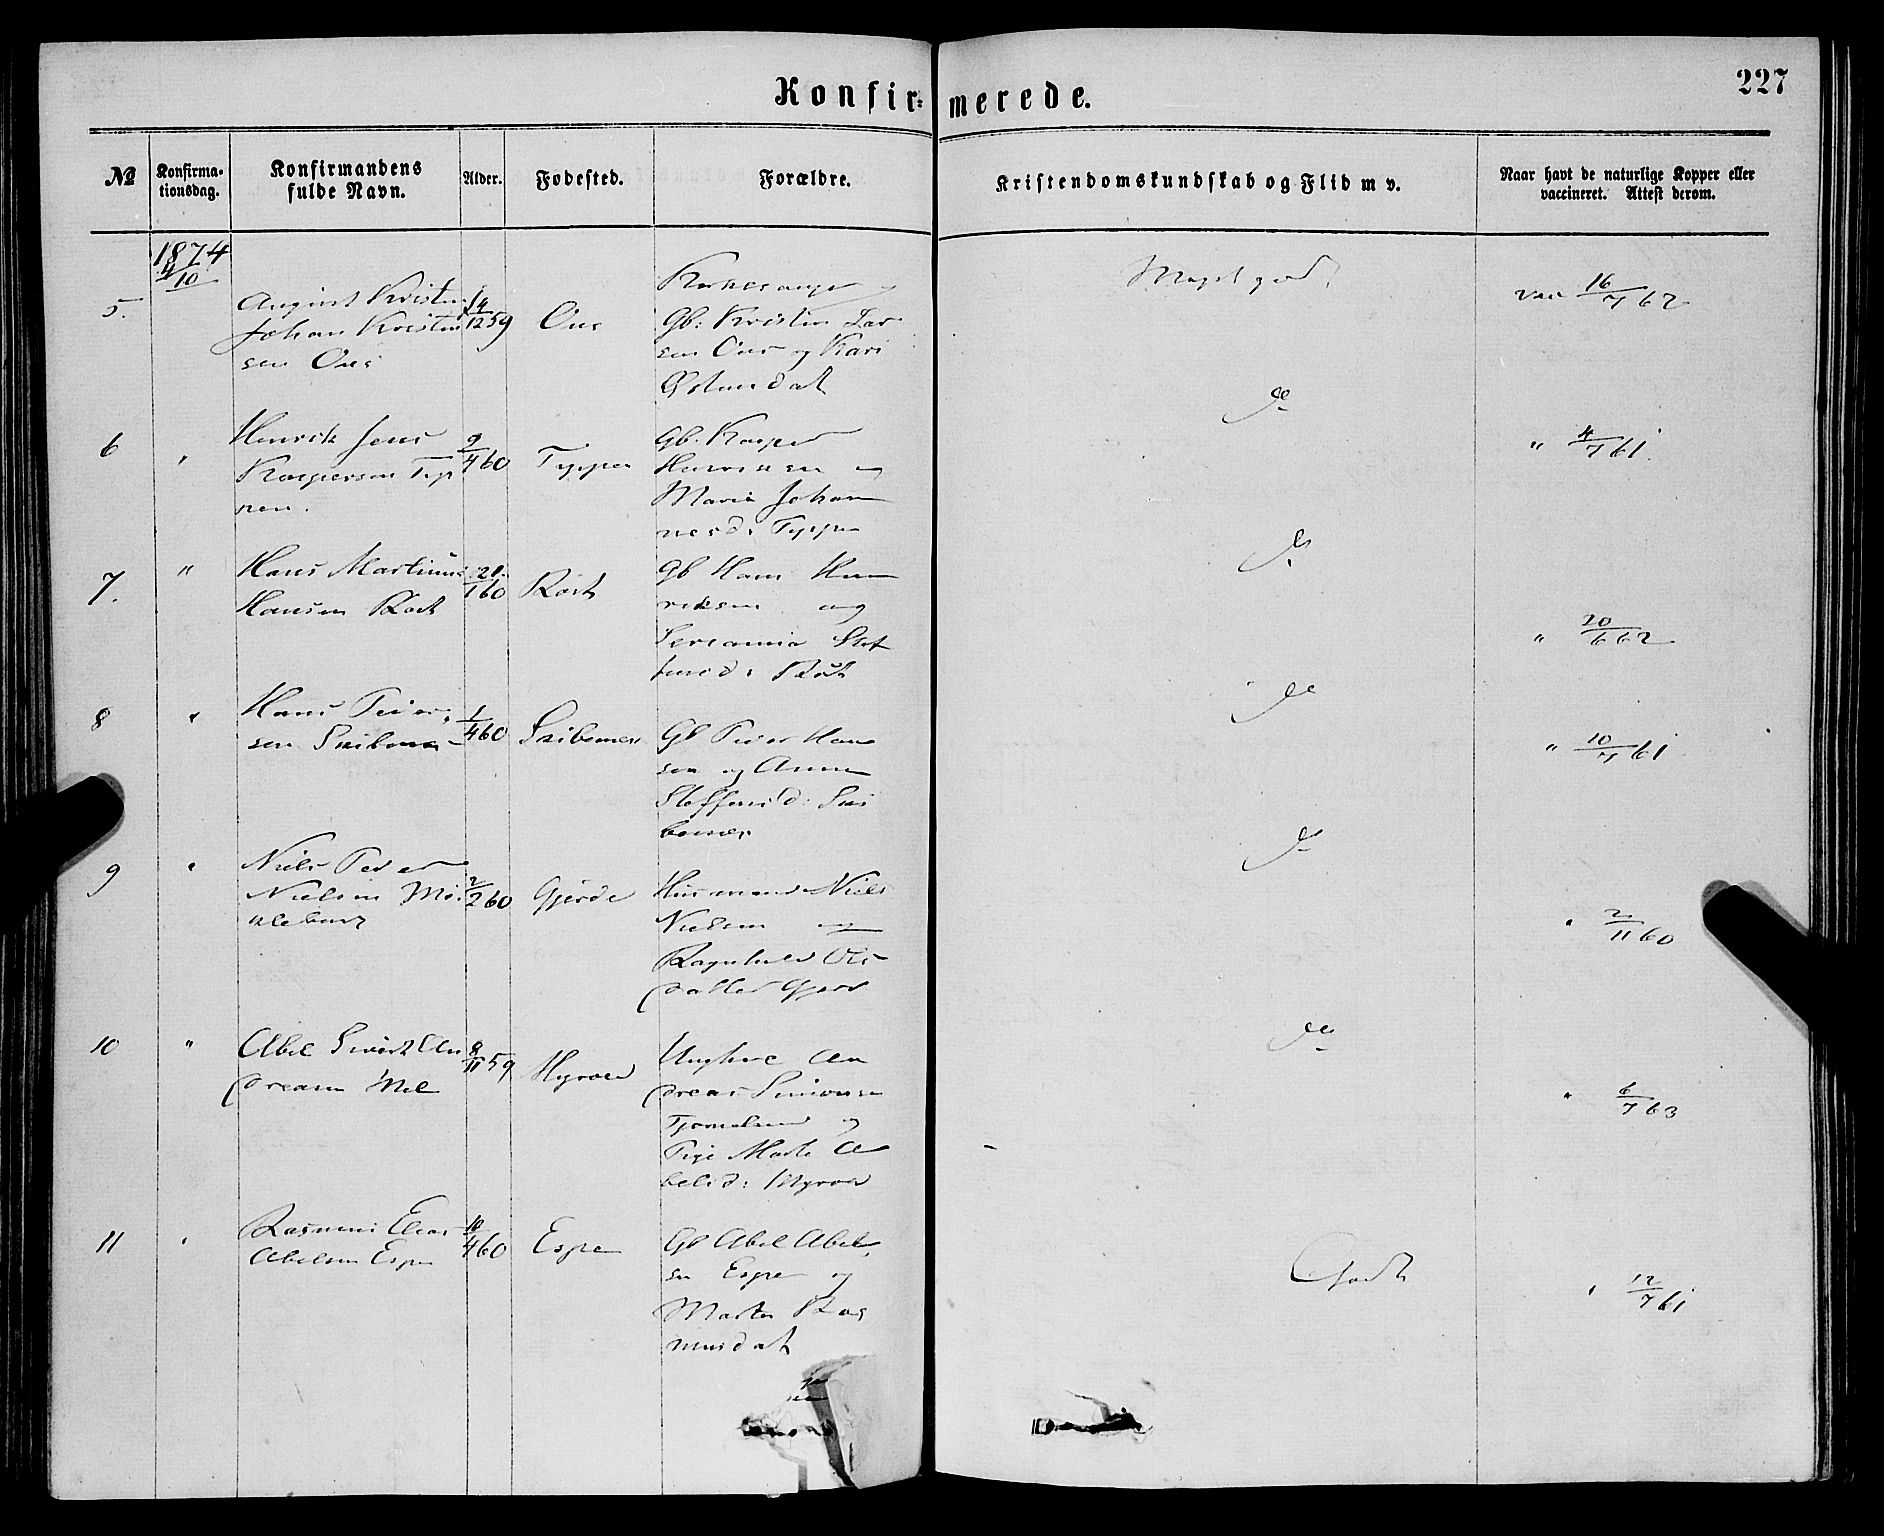 Konfir= merede.
227
№
Konfirma-
tionsdag.
Konfirmandens
fulde Navn.
Alder.
Fødested.
Forældre.
Kristendomskundskab og Flid m v.
Naar havt de naturlige Kopper eller
vaccineret. Attest derom.
1874
4/10
5.
August Kristen
Johan Kristen
sen
14/12 59
Kirkesanger og
Gb: Kristen Lar
sen og Kari
Meget god
vac 16/7 62
6
"
Henrik Jens
Kaspersen Typ
pen.
9/4 60
Typpen
Gb. Kasper
Henriksen og
Maria Johan
nesd: Typpen
do
" 4/7 61.
7.
"
Hans Martinus
Hansen
21/1 60
Gb Hans Hen
riksen og
Stef
fensd:
do
" 20/6 62
8
"
Hans Peder
sen Skibenes
1/4 60
Skibenes
Gb Peder Han
sen og Anne
Steffensd: Ski
benes
do
" 10/7 61
9
"
Niels Peder
Nielsen Mø
klebust
2/2 60
Gjerde
Husmand Niels
Nielsen og
Ragnhild Ols
datter Gjerd
do
" 2/11 60
10
"
Abel Sivert An
dreasen Mel
8/11 59
Myrvold
Ungkarl An
dreas Simonsen
og
Pige Marte A
belsd: Myrvold
do
" 6/7 63
11
"
Rasmus Elias
Abelsen Espe
10/4 60
Espe
Gb Abel Abel
sen Espe og
Marte Ras
musdat
Godt
" 12/7 61